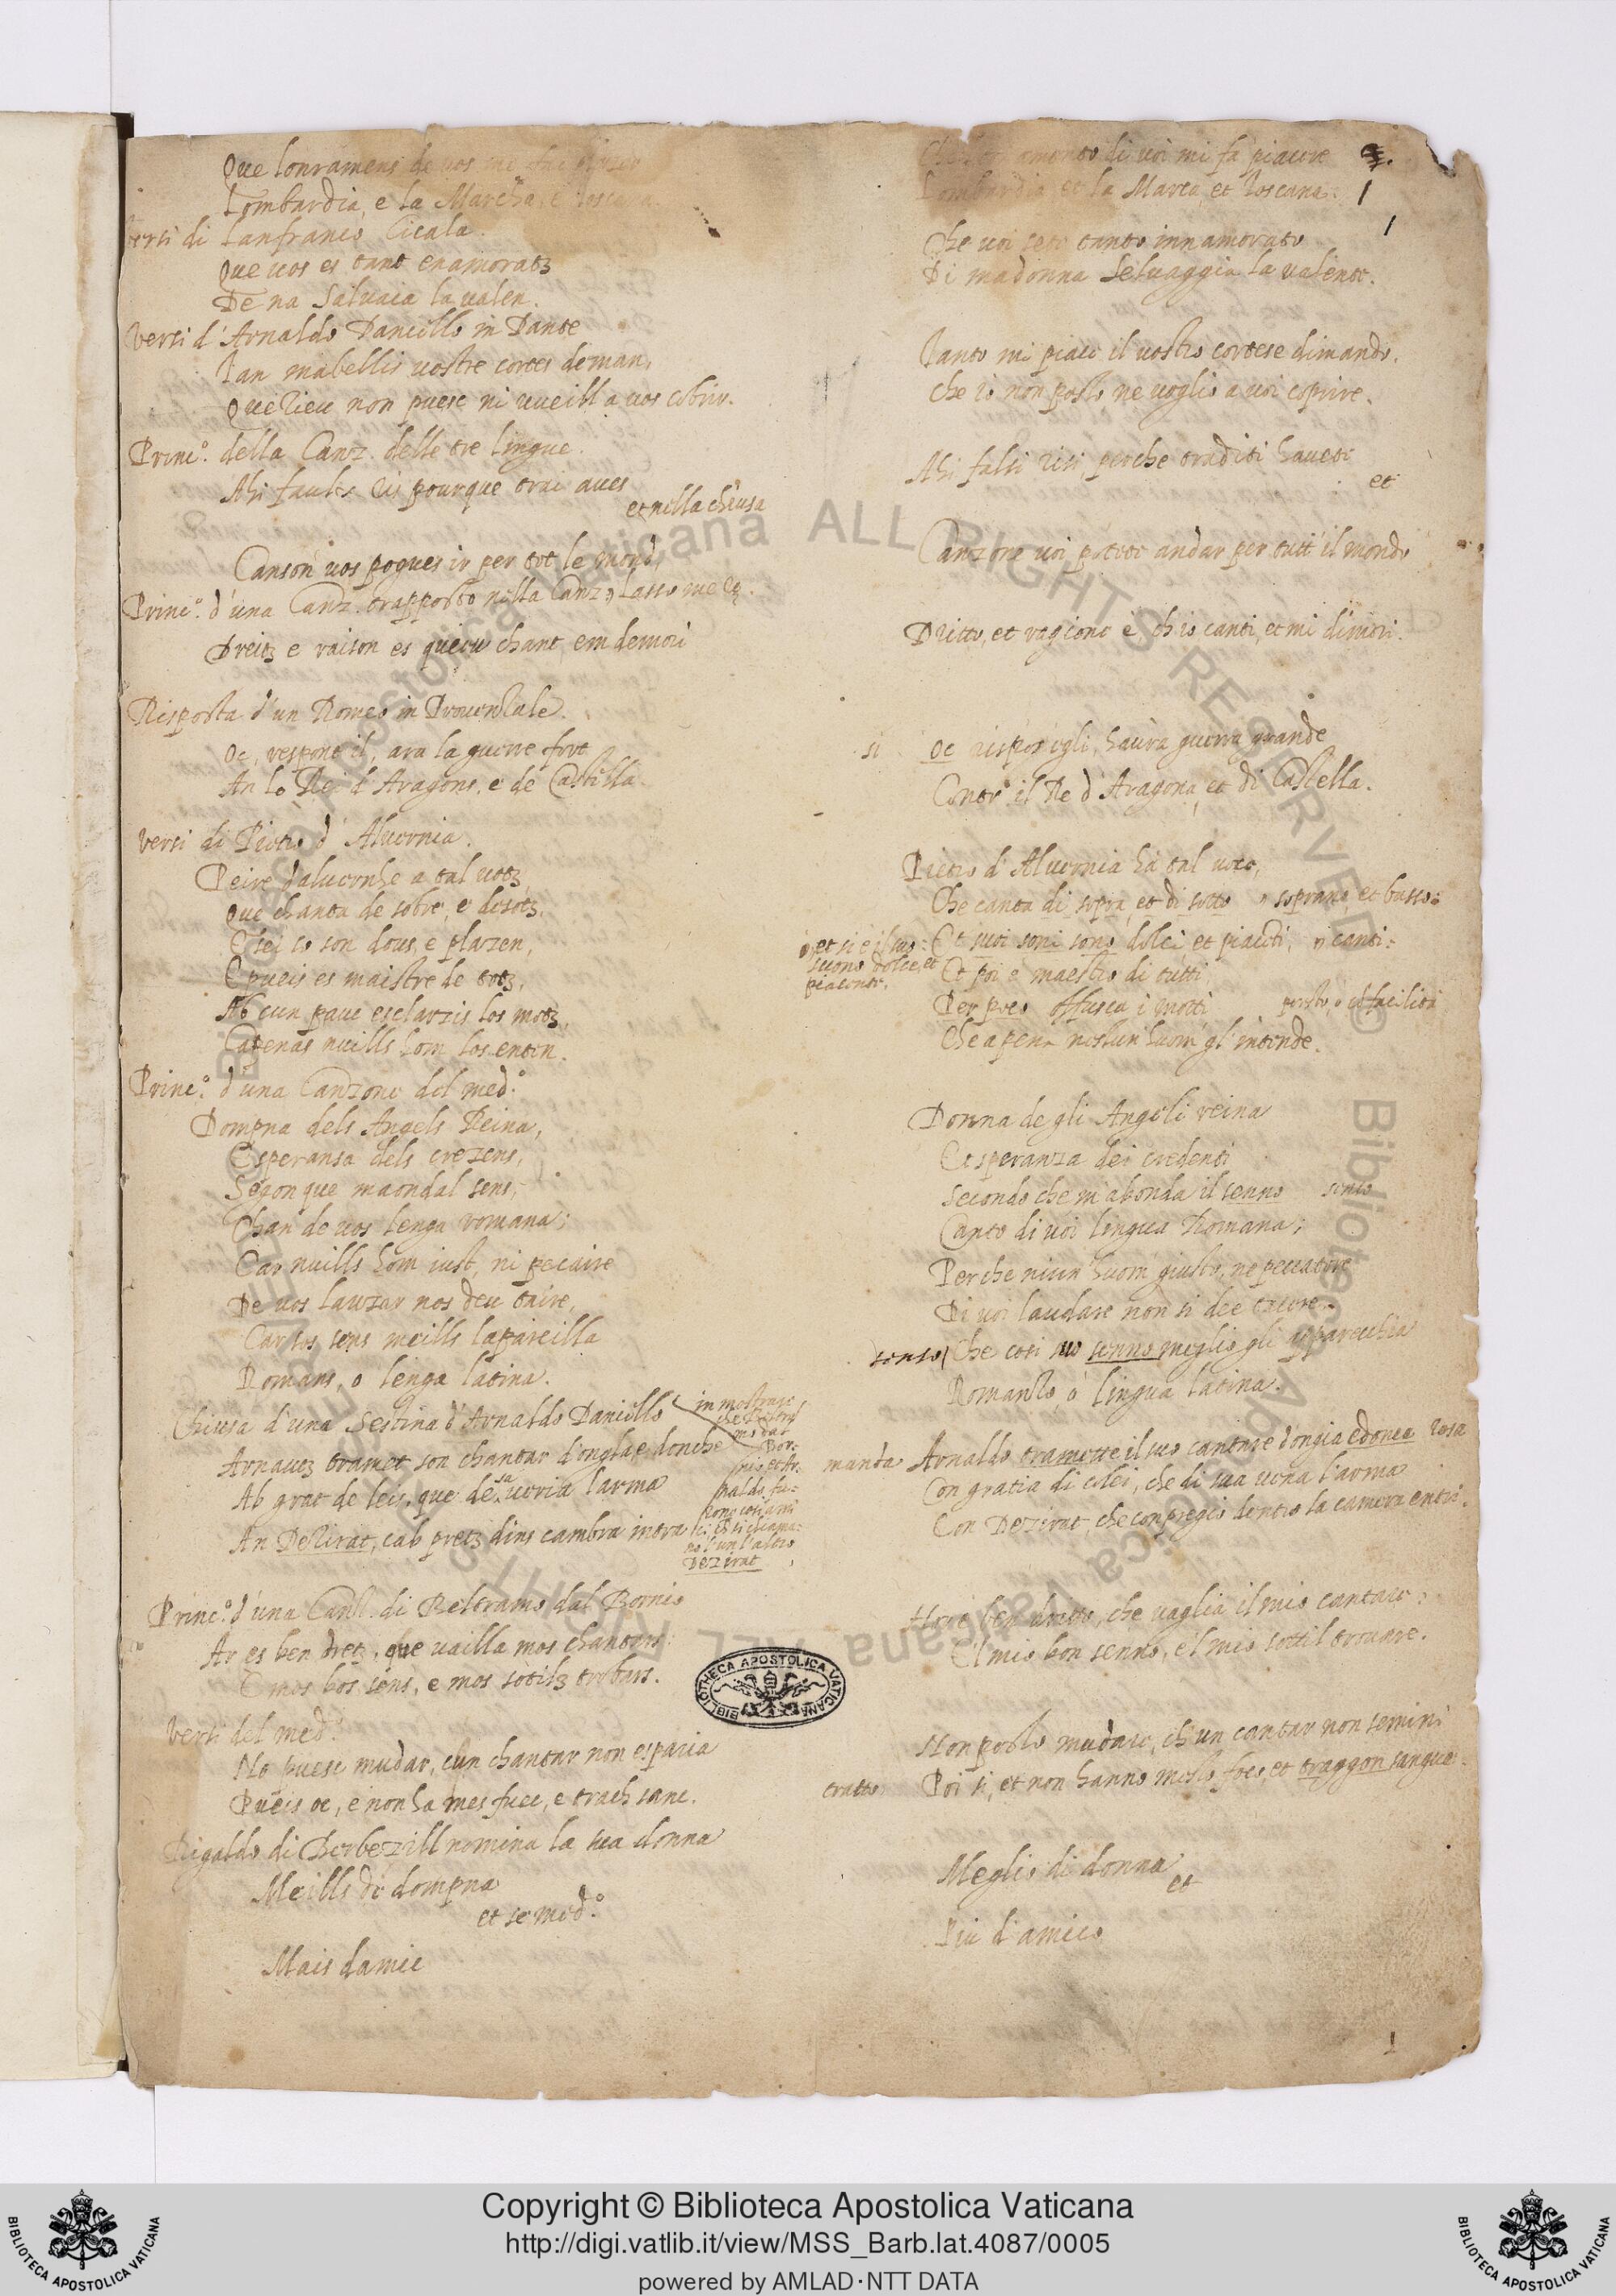 Que lonramens de vos me fai plazer
Lombardia, e la Marcha, e Toscana.
Versi di Lanfranco Cicala.
Que uos es tant enamoratz
De na Saluaia la ualen.
Versi d'Arnaldo Daniello in Dante
Tan mabellis uostre cortes deman,
Que ieu non puesc ni uueill a uos cobrir.
Princ.º della Canz. delle tre lingue.
Ahi faulx ris pourque trai aues
et nella chiusa
Canson uos pogues ir per tot le mond,
Princ.º d'una Canz. trapposto nella Canz.
Dreitz e raison es quieu chant, em demori
Risposta d'un Romeo in Prouenzale.
Oc, respont il, ara la guerre fort
An lo Rei d'Aragons, e de Castilla.
Versi di Pietro d'Aluernia.
Peire daluernhe a tal uotz,
Que chanta de sobre, e desotz,
E siei so son dous, e plazen,
E pueis es maistre de totz,
Ab cun pauc esclarzis los motz,
Capenas nuills hom los enten.
Princ.º d'una Canzone del med.º
Dompna dels Angels Reina,
Esperansa dels crezens,
Segon que maondal sens,
Chan de uos lenga romana;
Car nuills hom iust, ni pecaire
De uos lauzar nos deu taire,
Car sos sens meills lapareilla
Romans, o lenga latina.
Chiusa d'una Sestina d'Arnaldo Daniello
Arnautz tramet son chantar d'ongla e donche
Ab grat de leis, que de sa ueria larma
An Dezirat, cab pretz dins cambra intra
in mostrare
Dezirat
Princ.º d'una Canz. di Beltramo dal Bornio
Ar es ben dretz, que uailla mos chantars
E mos bos sens, e mos sotilz trobars.
Versi del med.º
No puesc mudar, cun chantar non esparia
Pueis oc, e non ha mes fuec, e trach sanc.
Rigaldo di Berbezill nomina la sua donna
Meills de dompna
et se med.º
Mais damic
di uoi mi fa piacere
Lombardia, et la Marca, et Toscana.
1
Che uoi sete tanto innamorato
Di madonna Seluaggia la ualente.
Tanto mi piace il uostro cortese dimando,
Che io non posso ne uoglio a uoi coprire.
Ahi falsi risi, perche traditi hauete
et
Canzone uoi potete andar per tutt'il mondo
Dritto, et ragione è, ch'io canti, et mi dimori.
si Oc rispos'egli, haurà guerra grande
Contr'il Re d'Aragona, et di Castella.
Pietro d'Aluernia hà tal uoce,
Che canta di sopra, et di sotto, soprano, et basso:
Et suoi soni sono dolci, et piacenti, canti:
et si è il suo suono dolce, et piacente.
Et poi è maestro di tutti,
Per poco offusca i motti
Che apena nessun huom gl'intende.
Donna de gli Angeli reina
Et speranza dei credenti
Secondo che m'abonda il senno senso
Canto di uoi lingua Romana;
Perche niun huom giusto, ne peccatore
Di uoi laudare non si dee tacere.
senso Che così suo senno meglio gli apparecchia
Romanzo, ò lingua latina.
manda Arnaldo tramette il suo cantare d'ongia edonca zosa
Con gratia di colei, che di sua uena l'arma
Con Dezirat, che con pregio dentro la camera entri.
Hora è ben dritto, che uaglia il mio cantare:
E'l mio bon senno, e'l mio sottil trouare.
Non posso mudare, ch'un cantar non semini
tratto Poi si, et non hanno messo foco, et traggon sangue.
Meglio di donna
et
Piu d'amico
1
BIBLIOTHECA APOSTOLICA VATICANA
© Biblioteca Apostolica Vaticana ALL RIGHTS RESERVED
Copyright © Biblioteca Apostolica Vaticana
http://digi.vatlib.it/view/MSS_Barb.lat.4087/0005
powered by AMLAD·NTT DATA
BIBLIOTECA APOSTOLICA VATICANA
BIBLIOTECA APOSTOLICA VATICANA